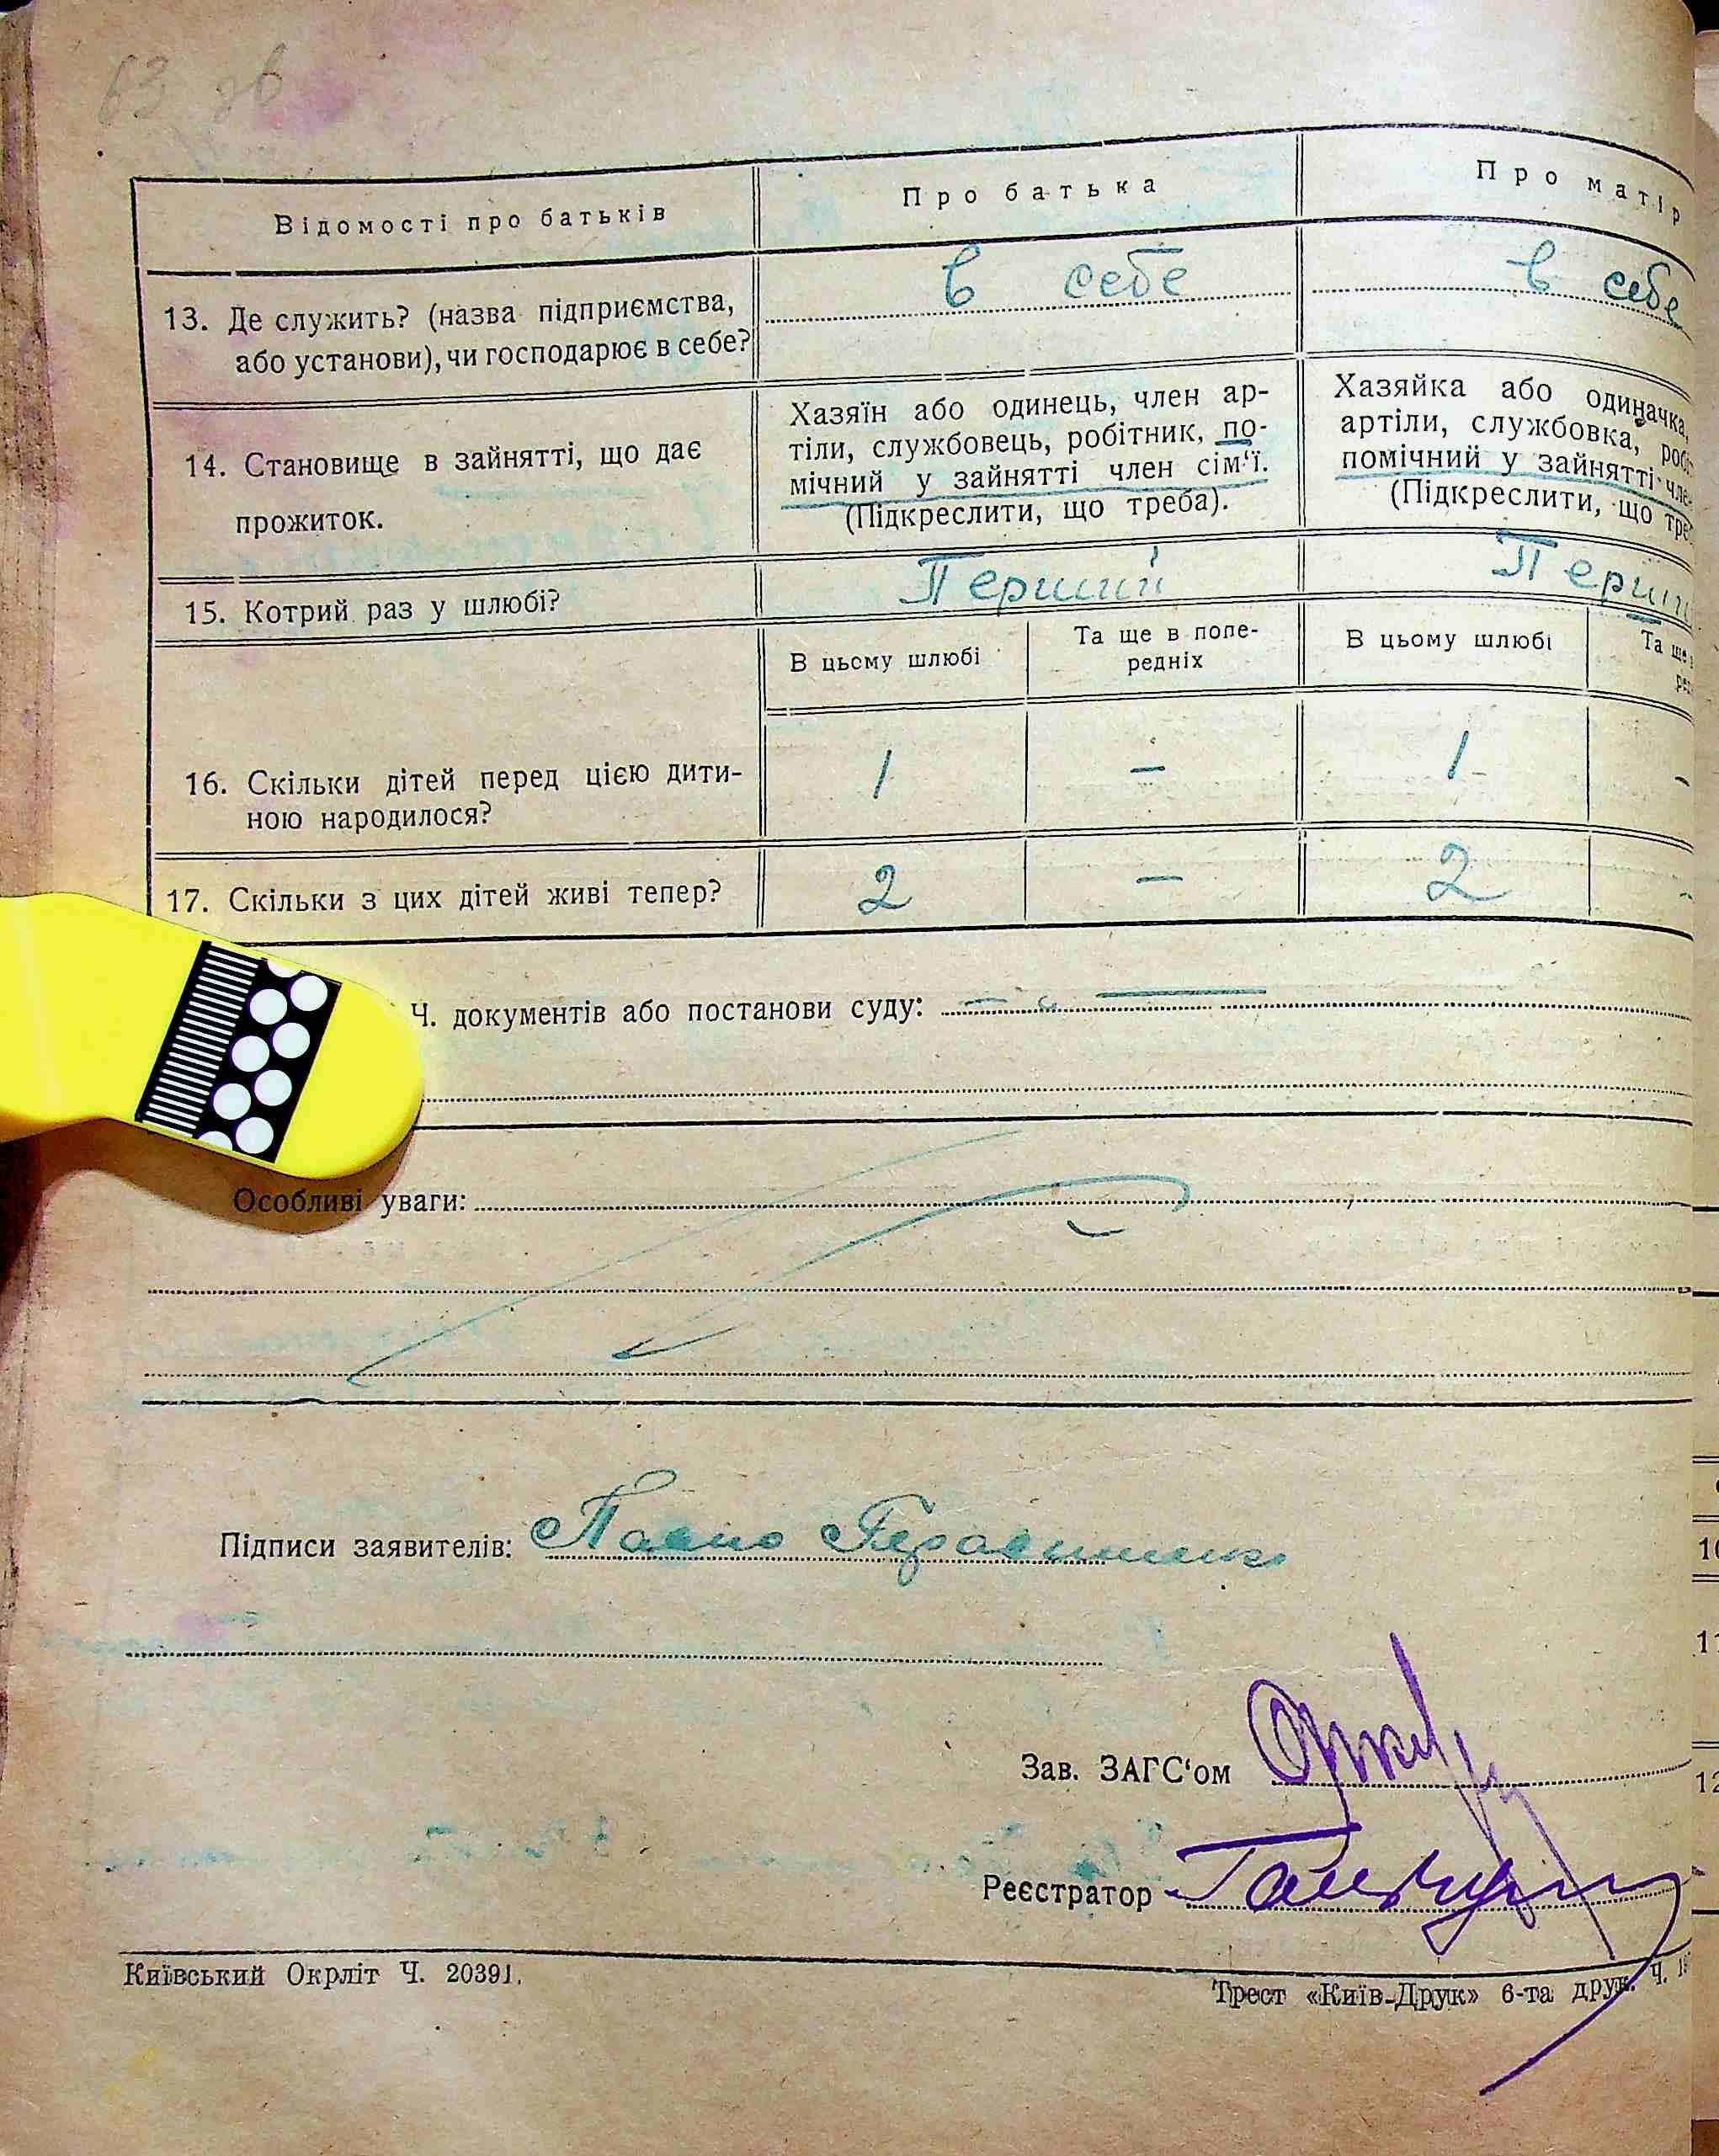 63 зв
Відомості про батьків
Про батька
Про матір
13. Де служить? (назва підприємства,
або установи), чи господарює в себе?
в себе
в себе
14. Становище в зайнятті, що дає
прожиток.
Хазяїн або одинець, член ар-
тіли, службовець, робітник, по-
мічний у зайнятті член сім‘ї.
(Підкреслити, що треба).
Хазяйка або одиначка,
артіли, службовка, робі
помічний у зайнятті чле
(Підкреслити, що тре
15. Котрий раз у шлюбі?
Перший
Перши
В цьому шлюбі
Та ще в попе-
редніх
В цьому шлюбі
Та ще
16. Скільки дітей перед цією дити-
ною народилося?
1 – 1 –
17. Скільки з цих дітей живі тепер?
2 – 2 –
Ч. документів або постанови суду:
Особливі уваги:
Підписи заявителів: Павло Герасименко
Зав. ЗАГС‘ом
Реєстратор
Київський Окрліт Ч. 20391.
Трест «Київ-Друк» 6-та друк. Ч.
10
11
12